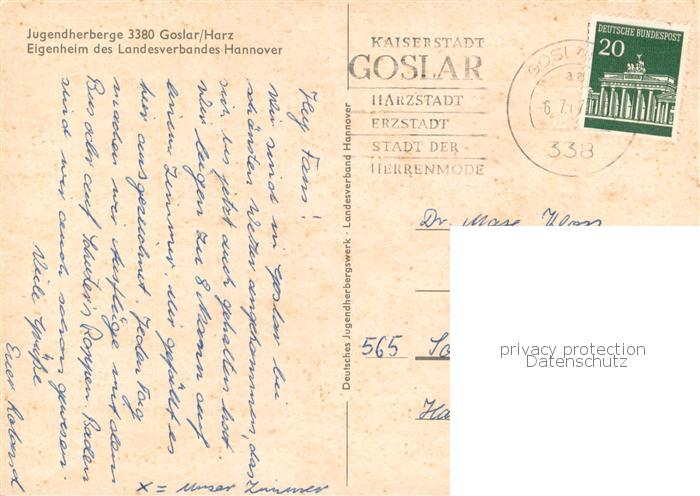 Jugendherberge 3380 Goslar/Harz
Eigenheim des Landesverbandes Hannover
Hey Fans!
Wir sind in Goslar bei
schönsten Wetter angekommen, das
sich bis jetzt auch gehalten hat.
Wir liegen zu 8 Mann auf
einem Zimmer. Mir gefällt es
hier ausgezeichnet. Jeden Tag
machen wir Ausflüge mit dem
Bus oder auf Schusters Rappen. Baden
sind wir auch schon gewesen.
Viele Grüße
Euer Roland
X = Unser Zimmer
Deutsches Jugendherbergswerk · Landesverband Hannover
KAISERSTADT
GOSLAR
HARZSTADT
ERZSTADT
STADT DER
HERRENMODE
GOSLAR
-6.7.
338
DEUTSCHE BUNDESPOST
20
Dr. Max
565 So
Ha
privacy protection
Datenschutz